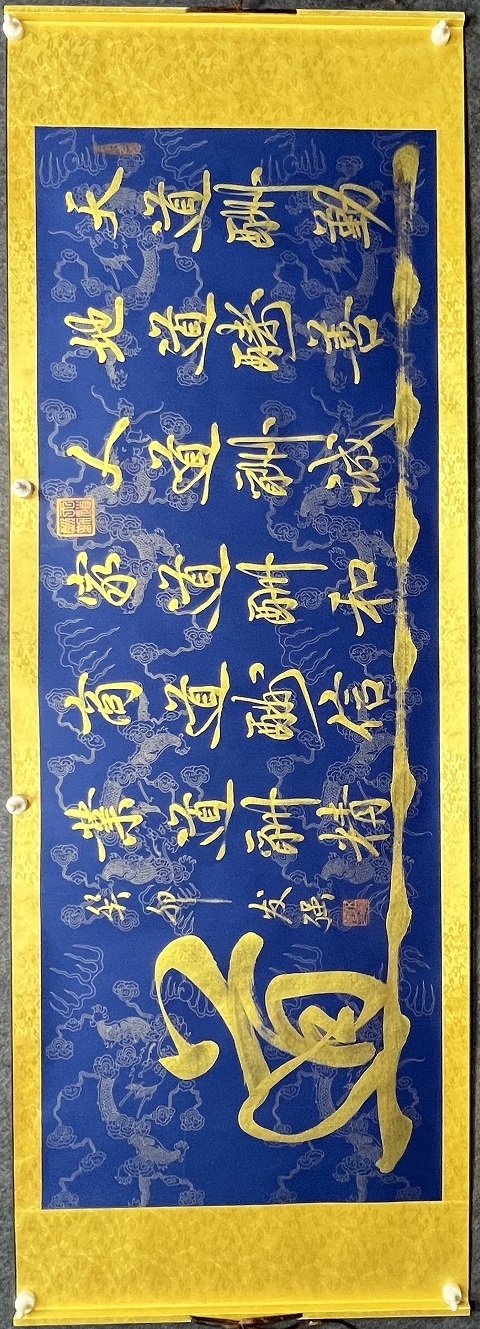 天道酬勤
地道酬善
人道酬诚
家道酬和
商道酬信
業道酬精
癸卯 发强
道